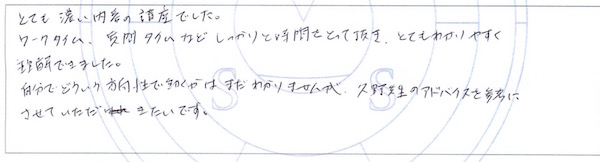 とても濃い内容の講座でした。
ワークタイム、質問タイムなどしっかりと時間をとって頂き、とてもわかりやすく
理解できました。
自分でどういう方向性で動くかはまだわかりませんが、久野先生のアドバイスを参考に
させていただきたいです。
S S